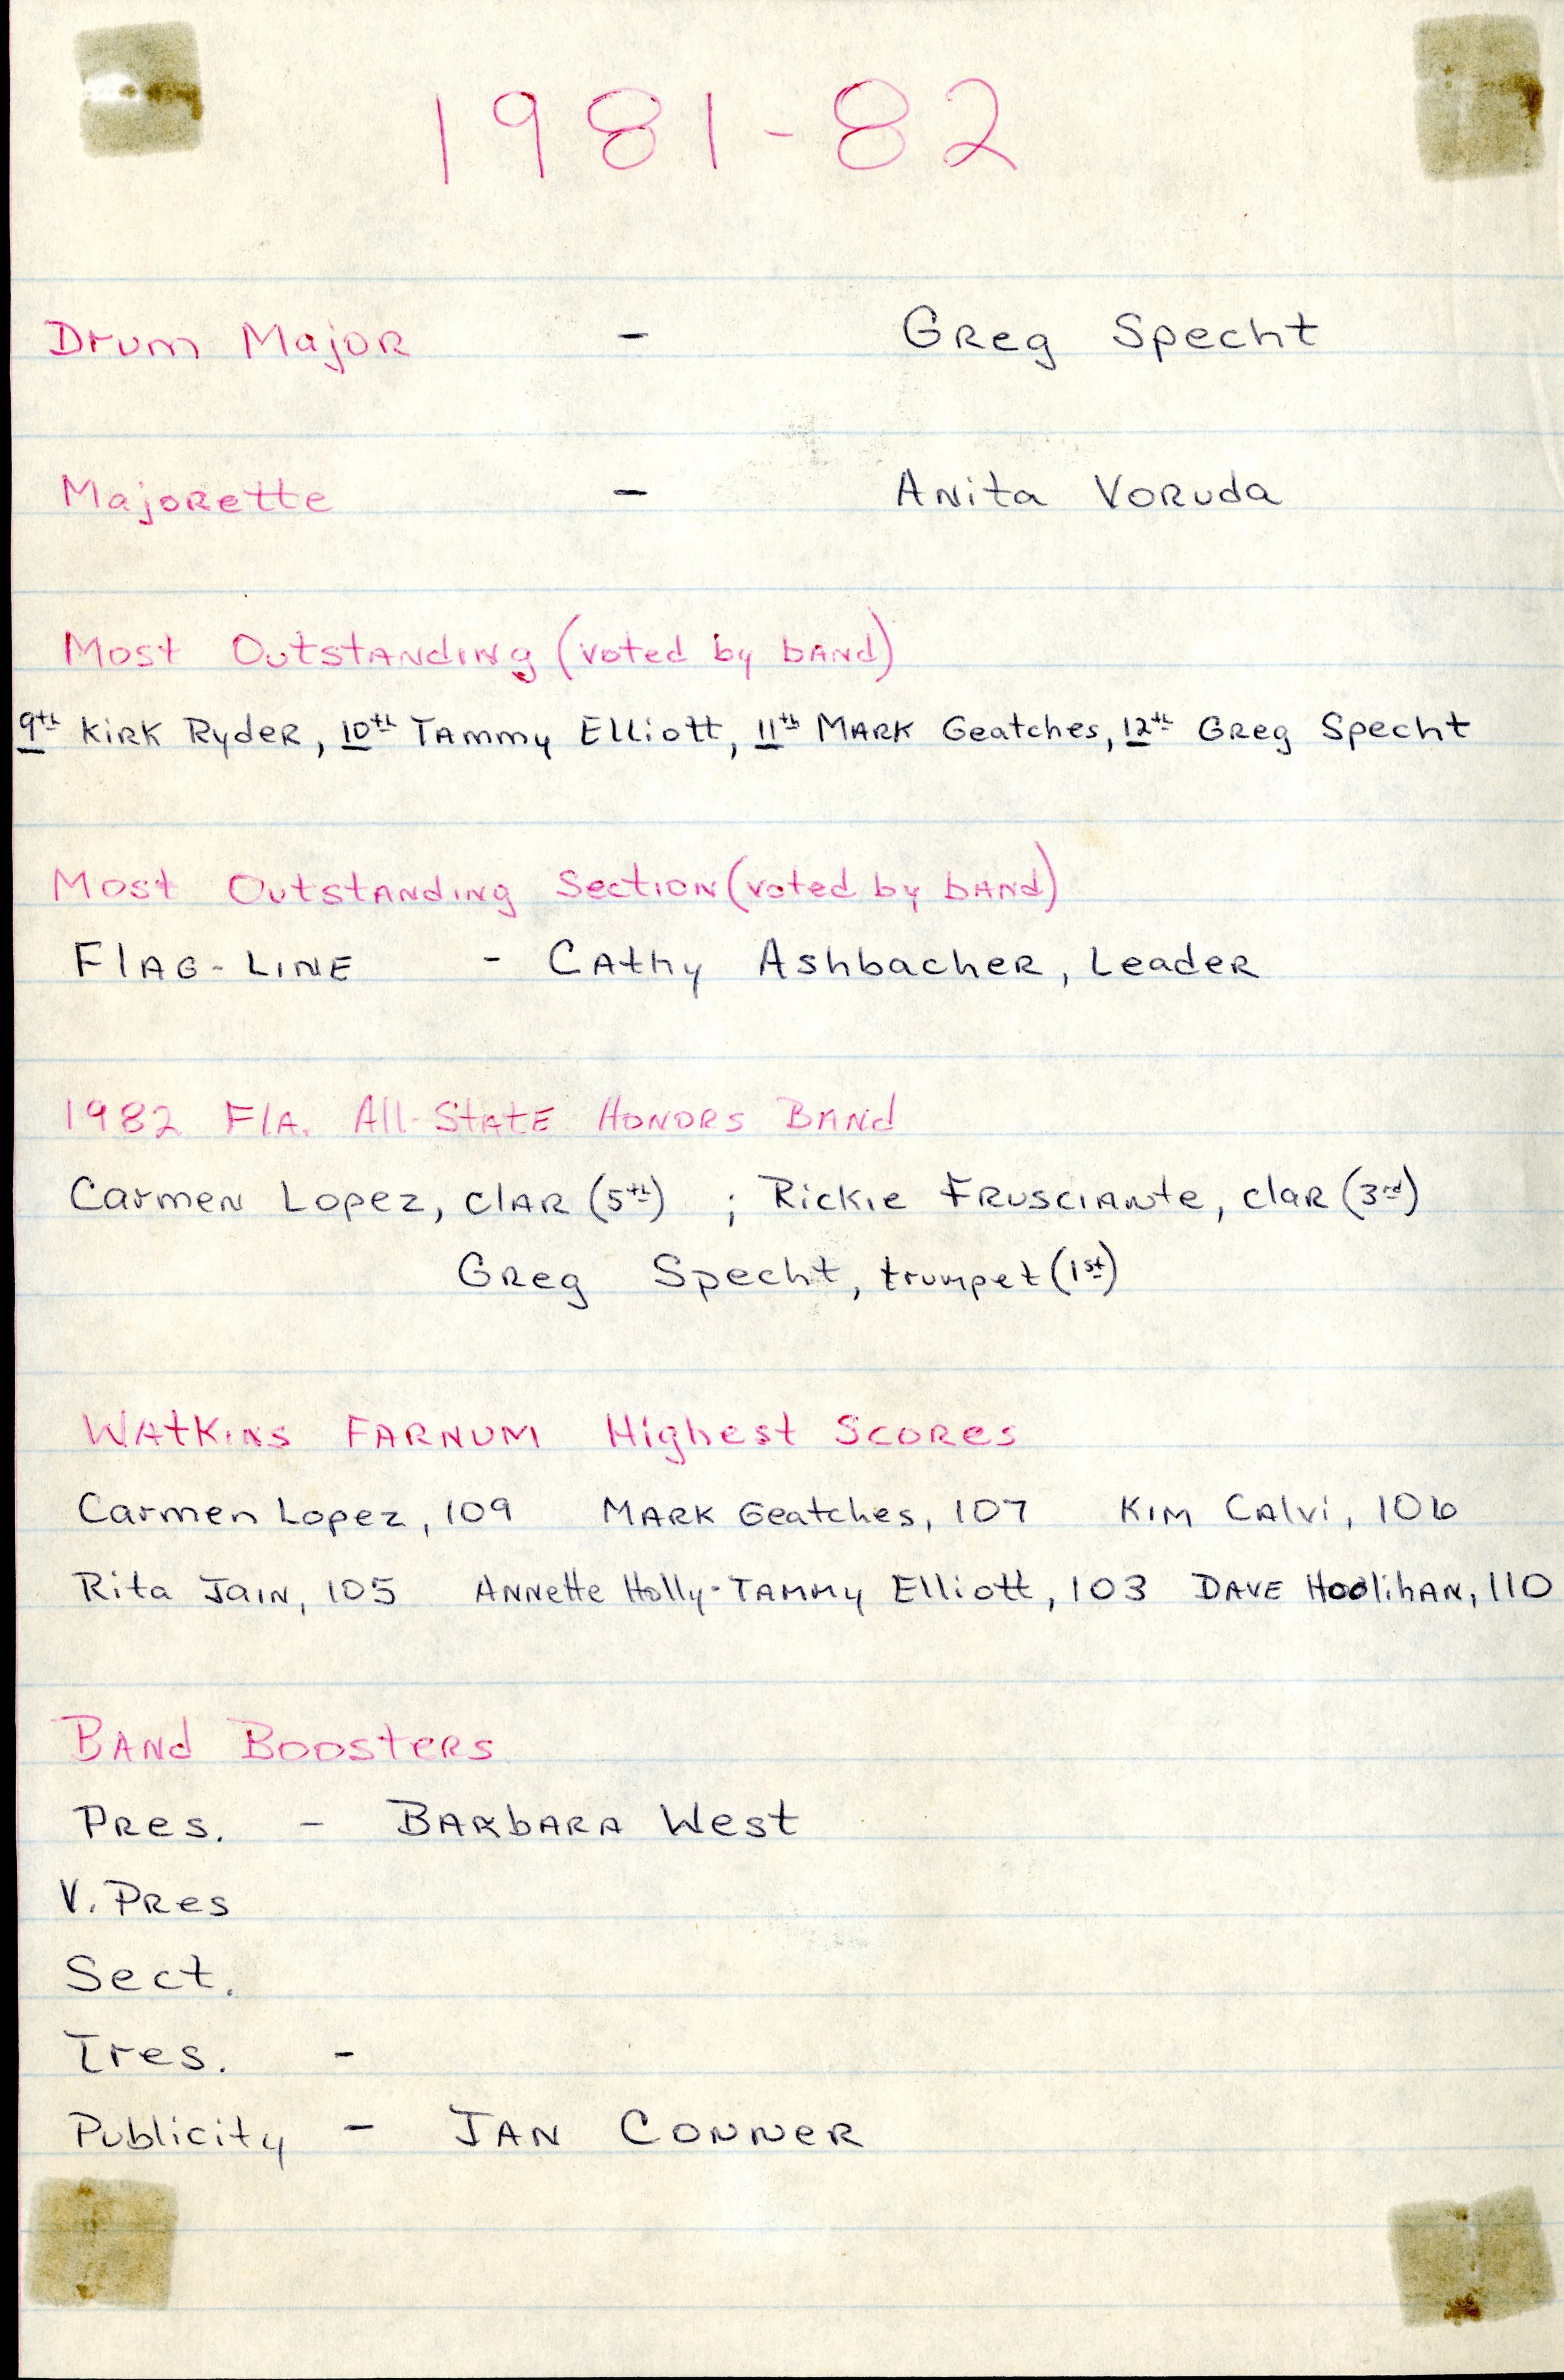 1981-82
Drum Major - Greg Specht
Majorette - Anita Voruda
Most Outstanding (voted by band)
9th Kirk Ryder, 10th Tammy Elliott, 11th Mark Geatches, 12th Greg Specht
Most Outstanding Section (voted by band)
Flag-Line - Cathy Ashbacher, Leader
1982 Fla. All-State Honors Band
Carmen Lopez, clar (5th) ; Rickie Frusciante, clar (3rd)
Greg Specht, trumpet (1st)
Watkins Farnum Highest Scores
Carmen Lopez, 109 Mark Geatches, 107 Kim Calvi, 106
Rita Jain, 105 Annette Holly-Tammy Elliott, 103 Dave Hoolihan, 110
Band Boosters
Pres. - Barbara West
V. Pres
Sect.
Tres. -
Publicity - Jan Conner